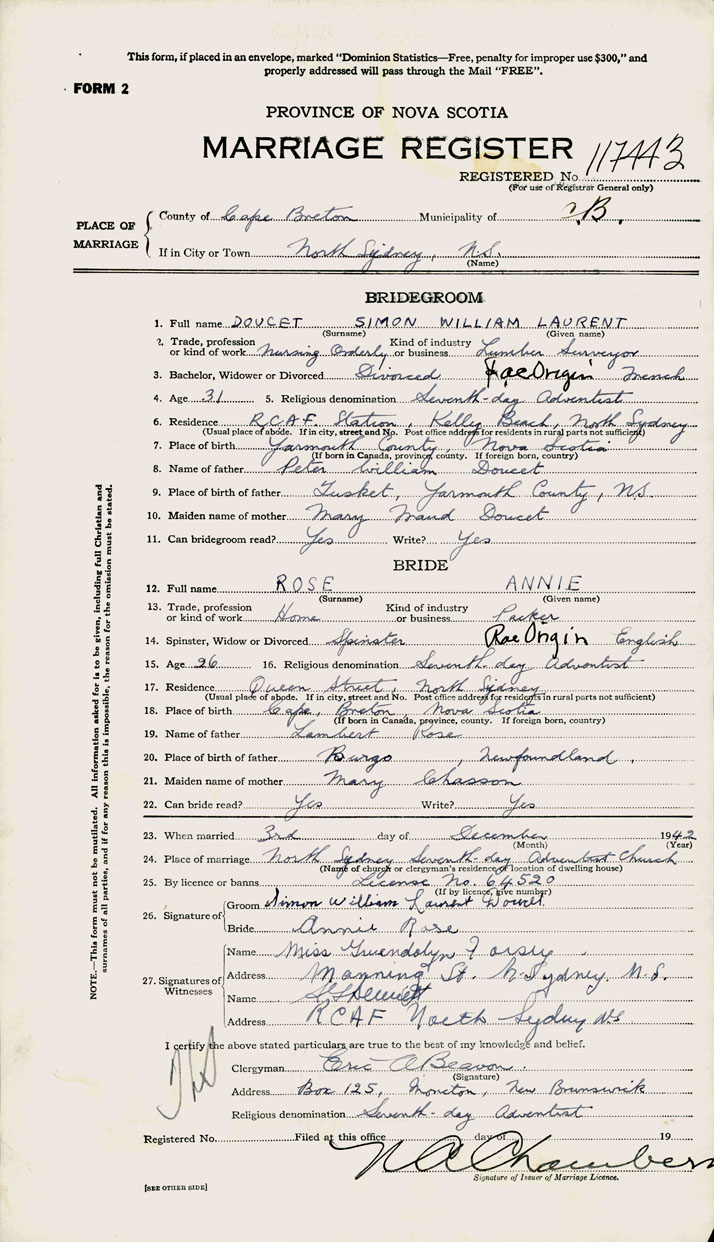 This form, if placed in an envelope, marked "Dominion Statistics—Free, penalty for improper use $300," and
properly addressed will pass through the Mail "FREE".
FORM 2
PROVINCE OF NOVA SCOTIA
MARRIAGE REGISTER 117443
REGISTERED No.
(For use of Registrar General only)
PLACE OF MARRIAGE
County of Cape Breton Municipality of B.
If in City or Town North Sydney, N.S.
(Name)
BRIDEGROOM
1. Full name DOUCET SIMON WILLIAM LAURENT
(Surname) (Given name)
2. Trade, profession or kind of work Nursing Orderly Kind of industry or business Lumber Surveyor
3. Bachelor, Widower or Divorced Divorced Rac Origin French
4. Age 31 5. Religious denomination Seventh-day Adventist
6. Residence R.C.A.F. Station, Kelly Beach, North Sydney
(Usual place of abode. If in city, street and No. Post office address for residents in rural parts not sufficient)
7. Place of birth Yarmouth County, Nova Scotia
(If born in Canada, province, county. If foreign born, country)
8. Name of father Peter William Doucet
9. Place of birth of father Tusket, Yarmouth County, N.S.
10. Maiden name of mother Mary Maud Doucet
11. Can bridegroom read? Yes Write? Yes
BRIDE
12. Full name ROSE ANNIE
(Surname) (Given name)
13. Trade, profession or kind of work Home Kind of industry or business Packer
14. Spinster, Widow or Divorced Spinster Rac Origin English
15. Age 26 16. Religious denomination Seventh-day Adventist
17. Residence Queen Street, North Sydney
(Usual place of abode. If in city, street and No. Post office address for residents in rural parts not sufficient)
18. Place of birth Cape, Breton, Nova Scotia
(If born in Canada, province, county. If foreign born, country)
19. Name of father Lambert Rose
20. Place of birth of father Burgo, Newfoundland.
21. Maiden name of mother Mary Chasson
22. Can bride read? Yes Write? Yes
23. When married 3rd day of December 1942
(Month) (Year)
24. Place of marriage North Sydney Seventh-day Adventist Church
(Name of church or clergyman's residence or location of dwelling house)
25. By licence or banns License No. 64520
(If by licence, give number)
26. Signature of
Groom Simon William Laurent Doucet
Bride Annie Rose
27. Signatures of Witnesses
Name Miss Gwendolyn Forsey
Address Manning St. N. Sydney. N.S.
Name
Address RCAF North Sydney NS
I certify the above stated particulars are true to the best of my knowledge and belief.
Clergyman Eric A Beavon.
(Signature)
Address Box 125, Moncton, New Brunswick
Religious denomination Seventh-day Adventist
Registered No. Filed at this office day of 19
N A Chambers
Signature of Issuer of Marriage Licence.
[SEE OTHER SIDE]
NOTE.—This form must not be mutilated. All information asked for is to be given, including full Christian and
surnames of all parties, and if for any reason this is impossible, the reason for the omission must be stated.